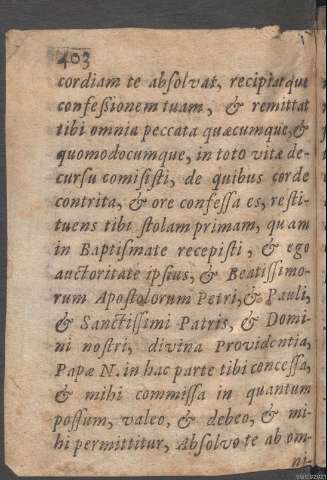 403
cordiam te absolvat, recipiatque
confessionem tuam, & remittat
tibi omnia peccata quæcumque, &
quomodocumque, in toto vitæ de-
cursu comisisti, de quibus corde
contrita, & ore confessa es, resti-
tuens tibi stolam primam, quam
in Baptismate recepisti, & ego
auctoritate ipsius, & Beatissimo-
rum Apostolorum Petri, & Pauli,
& Sanctissimi Patris, & Domi-
ni nostri, divina Providentia,
Papæ N. in hac parte tibi concessa,
& mihi commissa in quantum
possum, valeo, & debeo, & mi-
hi permittitur, Absolvo te ab om-
ni-